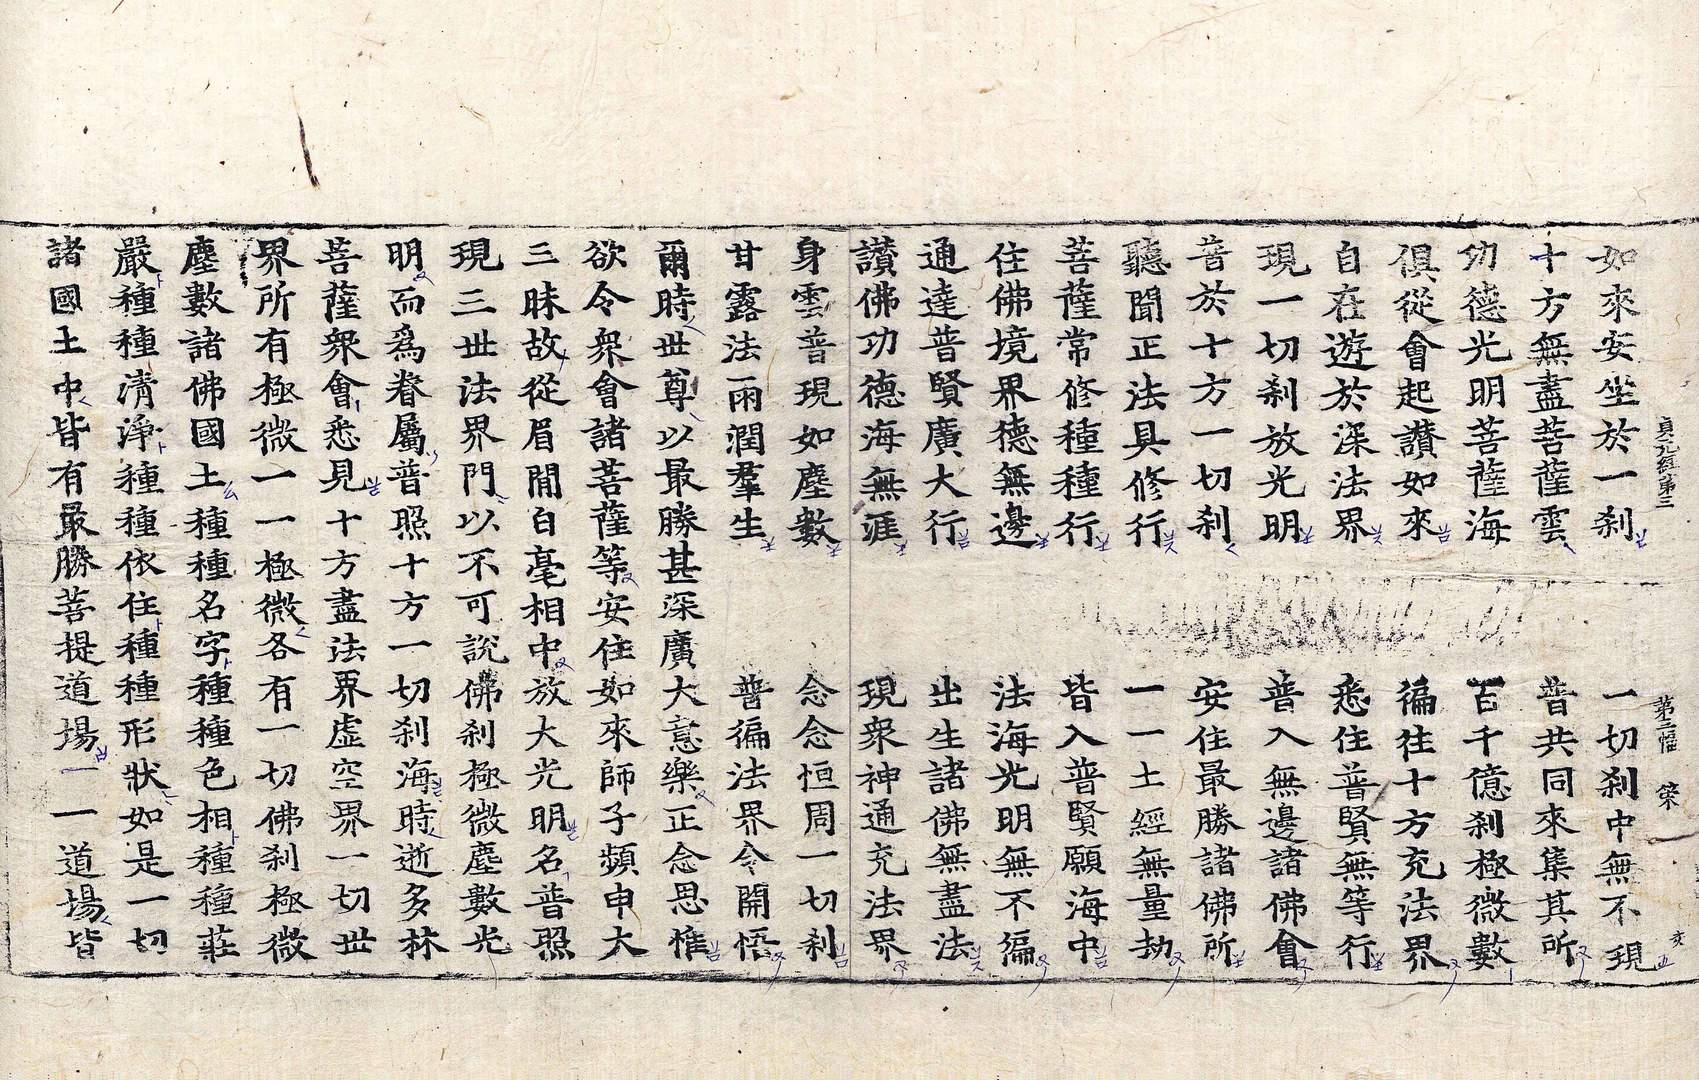 貞元經第三 第二幅 榮
如來安坐於一刹 一切刹中無不現
十方無盡菩薩雲 普共同來集其所
功德光明菩薩海 百千億刹極微數
俱從會起讃如來 徧往十方充法界
自在遊於深法界 悉住普賢無等行
現一切刹放光明 普入無邊諸佛會
普於十方一切刹 安住最勝諸佛所
聽聞正法具修行 一一土經無量劫
菩薩常修種種行 皆入普賢願海中
住佛境界德無邊 法海光明無不徧
通達普賢廣大行 出生諸佛無盡法
讃佛功德海無涯 現衆神通充法界
身雲普現如塵數 念念恒周一切刹
甘露法雨潤羣生 普徧法界令開悟
爾時世尊以最勝甚深廣大意樂正念思惟
欲令衆會諸菩薩等安住如來師子頻申大
三昧故從眉間白毫相中放大光明名普照
現三世法界門以不可說佛刹極微塵數光
明而爲眷屬普照十方一切刹海時逝多林
菩薩衆會悉見十方盡法界虛空界一切世
界所有極微一一極微各有一切佛刹極微
塵數諸佛國土種種名字種種色相種種莊
嚴種種清淨種種依住種種形狀如是一切
諸國土中皆有最勝菩提道場一一道場皆